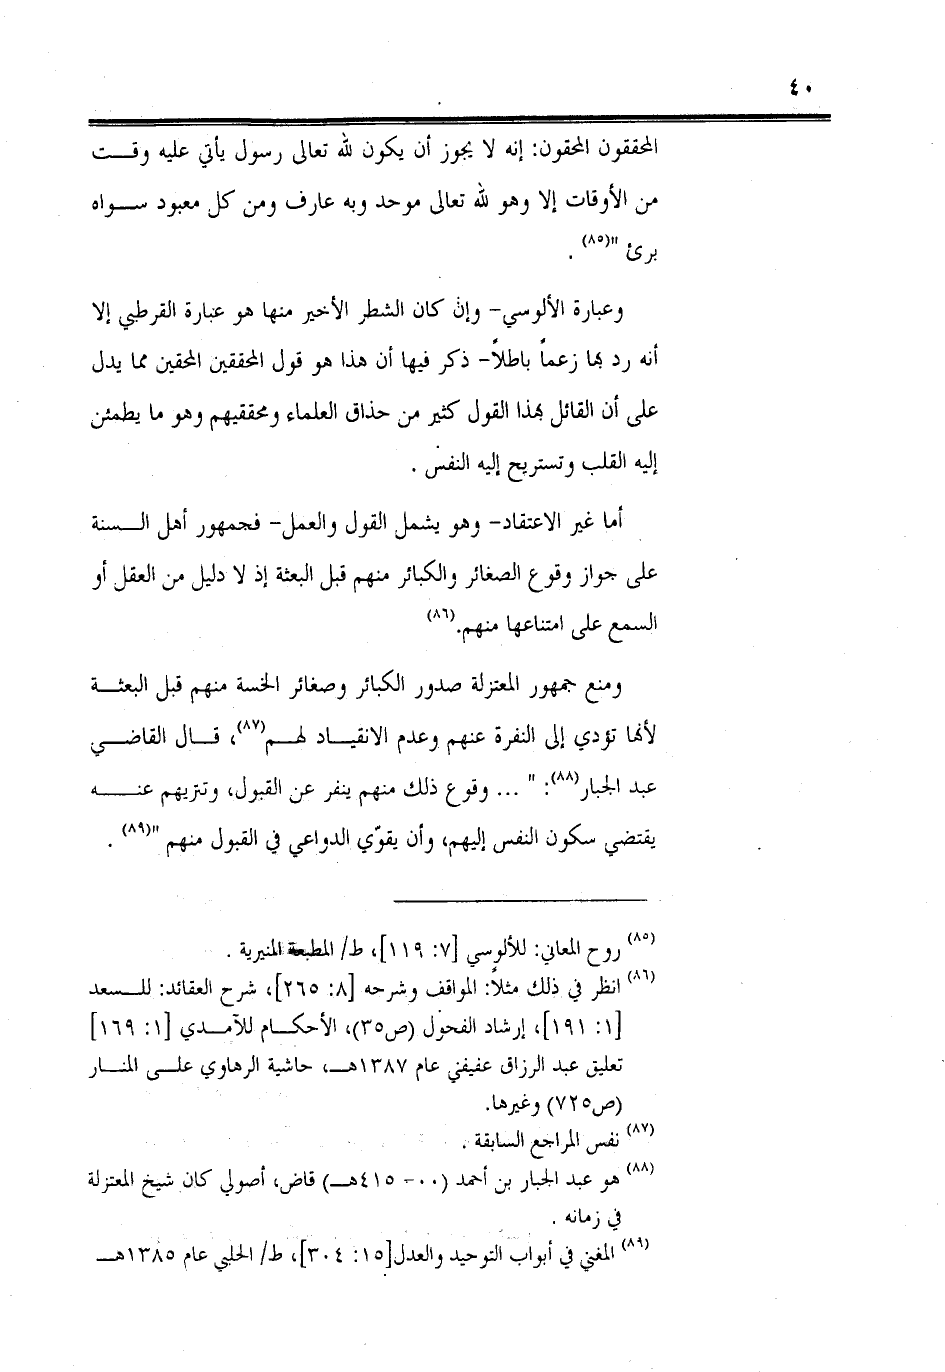 ٤٠
المحققون المحقون: إنه لا يجوز أن يكون لله تعالى رسول يأتي عليه وقـــت
من الأوقات إلا وهو لله تعالى موحد وبه عارف ومن كل معبود ســـواه
برئ "(٨٥) .
وعبارة الألوسي- وإن كان الشطر الأخير منها هو عبارة القرطبي إلا
أنه رد بها زعماً باطلاً- ذكر فيها أن هذا هو قول المحققين المحقين مما يدل
على أن القائل بهذا القول كثير من حذاق العلماء ومحققيهم وهو ما يطمئن
إليه القلب وتستريح إليه النفس .
أما غير الاعتقاد- وهو يشمل القول والعمل- فجمهور أهل الـــسنة
على جواز وقوع الصغائر والكبائر منهم قبل البعثة إذ لا دليل من العقل أو
السمع على امتناعها منهم.(٨٦)
ومنع جمهور المعتزلة صدور الكبائر وصغائر الخسة منهم قبل البعثـــة
لأنها تؤدي إلى النفرة عنهم وعدم الانقيـــاد لهـــم(٨٧)، قـــال القاضـــي
عبد الجبار(٨٨): " ... وقوع ذلك منهم ينفر عن القبول، وتنزيههم عنـــــه
يقتضي سكون النفس إليهم، وأن يقوّي الدواعي في القبول منهم "(٨٩) .
(٨٥) روح المعاني: للألوسي [٧: ١١٩]، ط/ المطبعة المنيرية .
(٨٦) انظر في ذلك مثلاً: المواقف وشرحه [٨: ٢٦٥]، شرح العقائد: للـــسعد
[١: ١٩١]، إرشاد الفحول (ص٣٥)، الأحكـــام للآمـــدي [١: ١٦٩]
تعليق عبد الرزاق عفيفي عام ١٣٨٧هـــ، حاشية الرهاوي علـــى المنـــار
(ص٧٢٥) وغيرها.
(٨٧) نفس المراجع السابقة .
(٨٨) هو عبد الجبار بن أحمد (٠٠- ٤١٥هـــ) قاض، أصولي كان شيخ المعتزلة
في زمانه .
(٨٩) المغني في أبواب التوحيد والعدل[١٥: ٣٠٤]، ط/ الحلبي عام ١٣٨٥هـــ